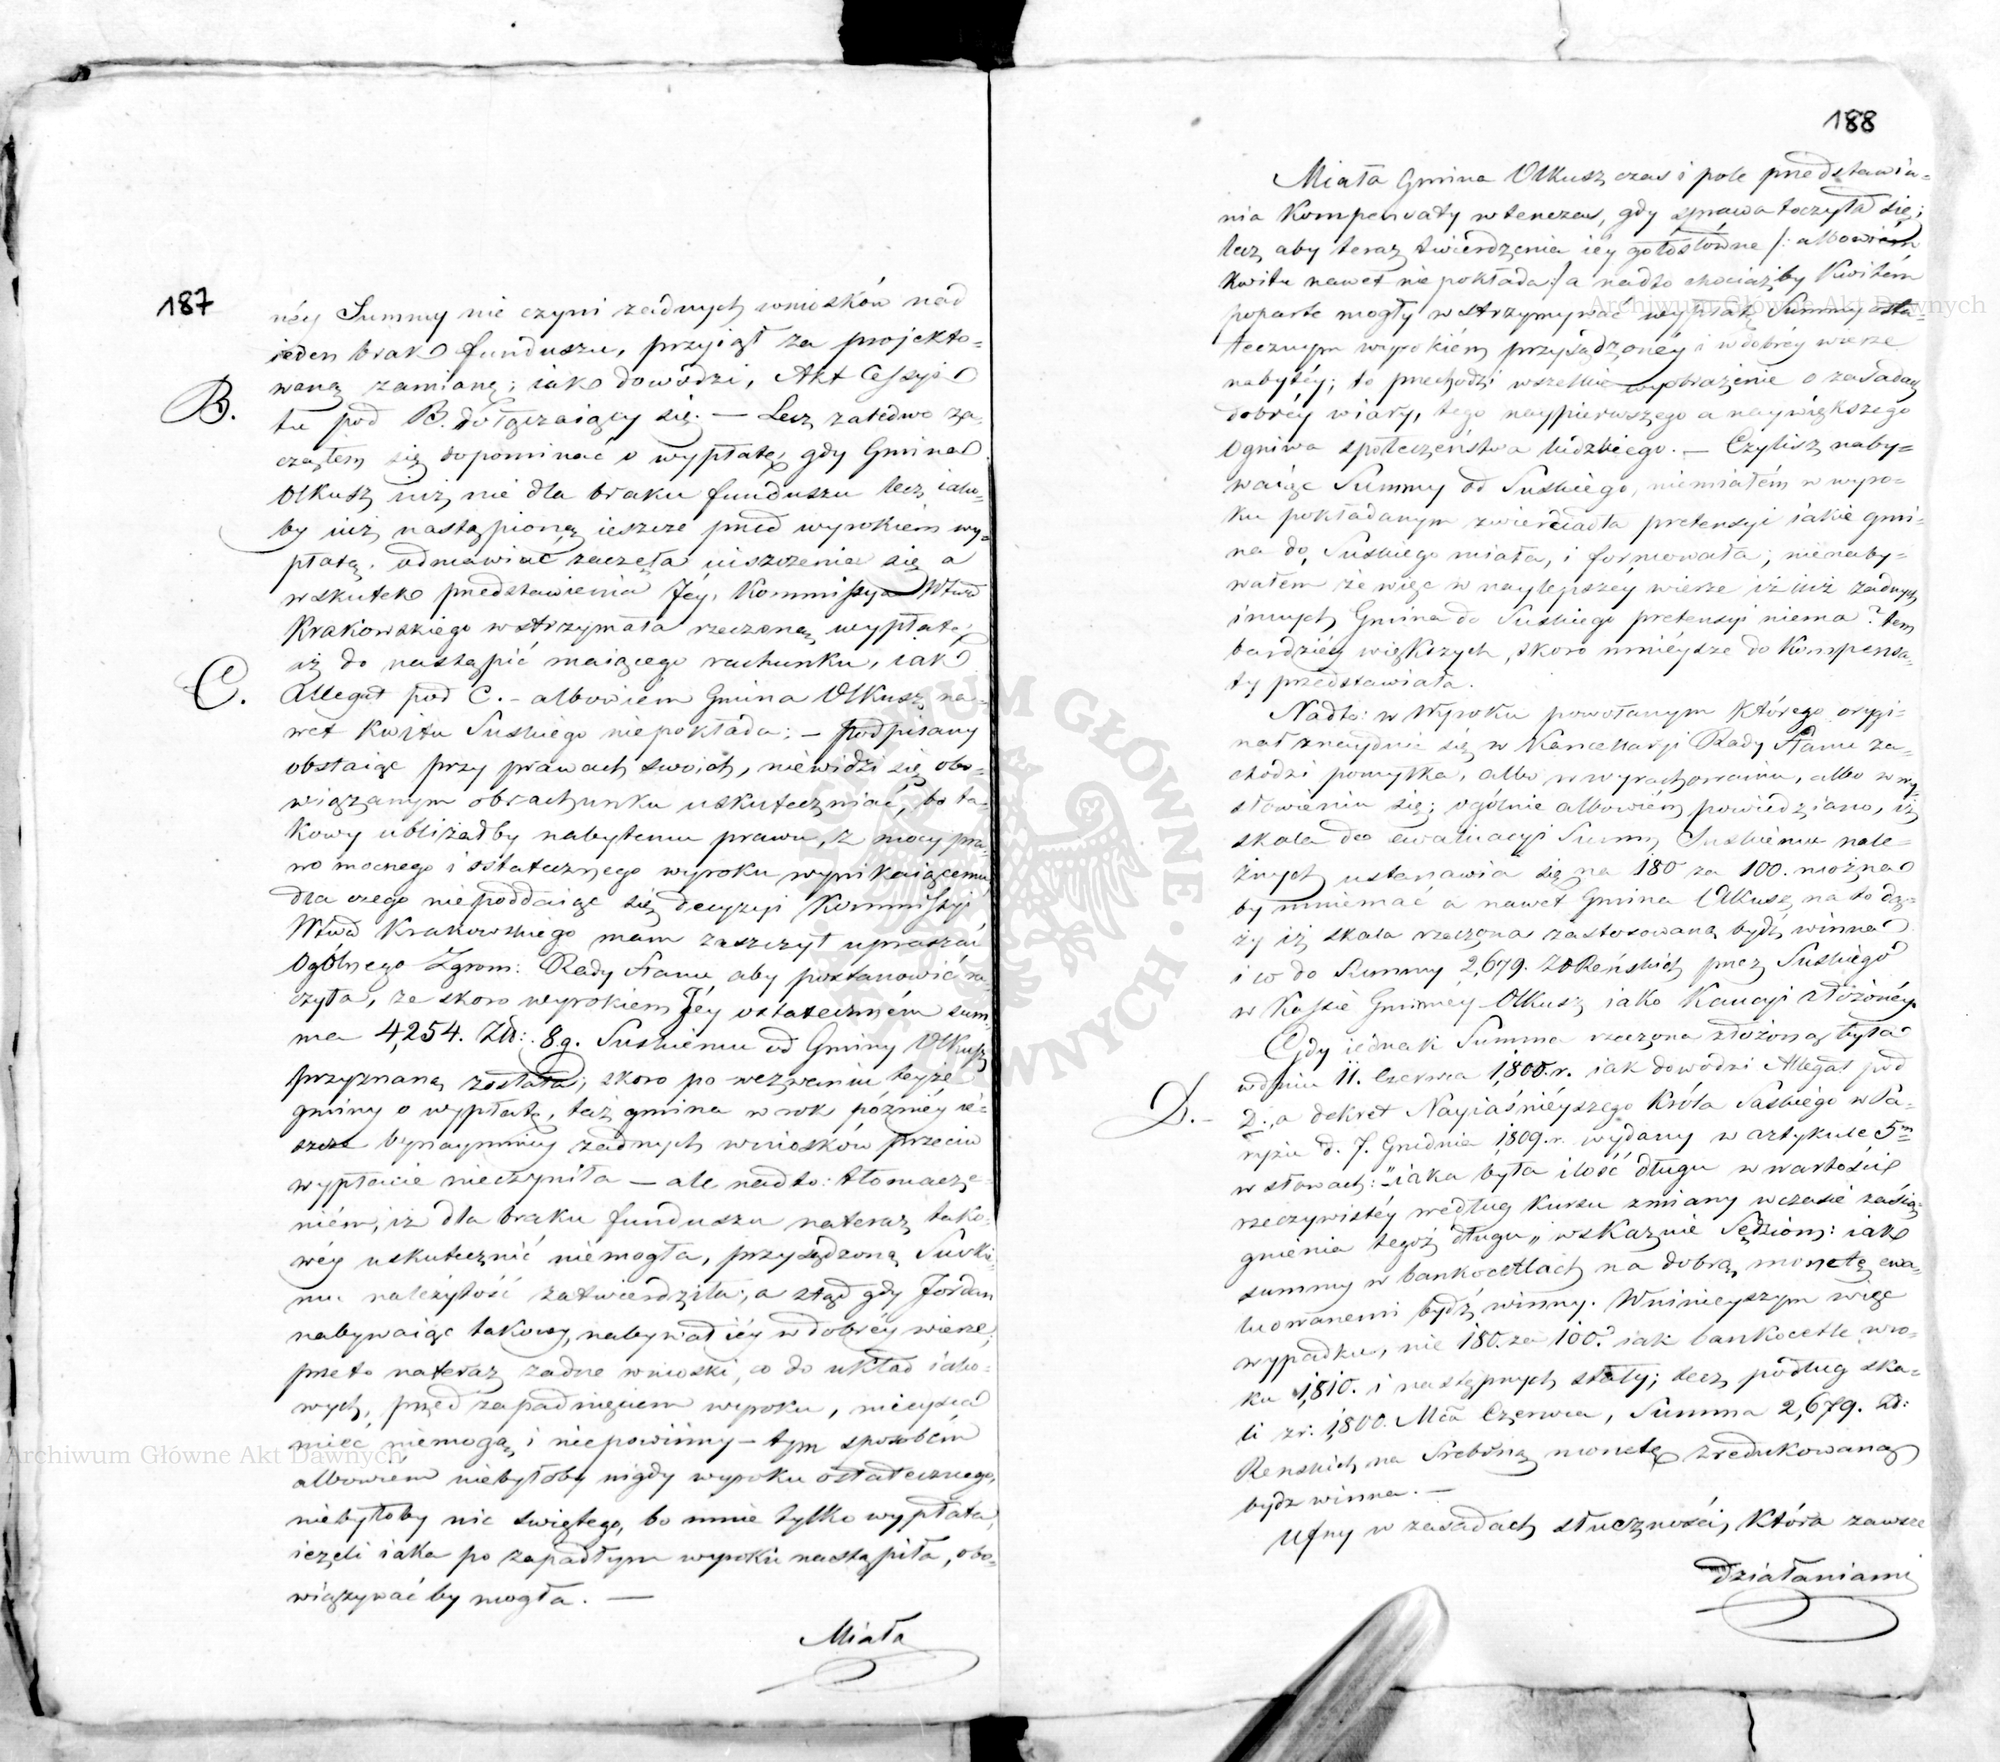 187
néy Summy nie czyni żadnych wniosków nad
ieden brak funduszu, przyiął za projekto-
waną zamianę; iak dowodzi, Akt Cessyi
B.
tu pod B. dołączaiący się. — Lecz zaledwo za-
cząłem się dopominać o wypłatę, gdy Gmina
Olkusz iuż nie dla braku funduszu lecz iako-
by iuż nastąpioną ieszcze przed wyrokiem wy-
płatą, odmawiać zaczęła uiszczenia się a
wskutek przedstawienia Jéy, Kommissya Wtwa
Krakowskiego wstrzymała rzeczoną wypłatę,
iż do nastąpić maiącego rachunku, iak
C.
Allegat pod C. – albowiem Gmina Olkusz na-
wet kwitu Suskiego niepokłada; — podpisany
obstaiąc przy prawach swoich, niewidzi się obo-
wiązanym obrachunku uskuteczniać, bo ta-
kowy ubliżałby nabytemu prawu, z mocy pra-
wo mocnego i ostatecznego wyroku wynikaiącemu
dla czego niepoddaiąc się decyzyi Kommissyi
Wtwa Krakowskiego mam zaszczyt upraszać
Ogólnego Zgrom: Rady Stanu aby postanowić ra-
czyła, że skoro wyrokiem Jéy ostateczném sum-
ma 4,254. Złł: 8 g. Suskiemu od Gminy Olkusz
przyznaną została; skoro po wezwaniu teyże
gminy o wypłatę, taż gmina w rok późniéy ie-
szcze bynaymniey żadnych wniosków przeciw
wypłacie nieczyniła — ale nadto: tłomacze-
niém, iż dla braku funduszu nateraz tako-
wéy uskutecznić niemogła, przysądzoną Suski-
mu należytość zatwierdziła; a ztąd gdy Jordan
nabywaiąc takowy, nabywał iéy w dobréy wierze;
przeto nateraz żadne wnioski, co do układ iako-
wych, przed zapadnięciem wyroku, mieysca
mieć niemogą i niepowinny — tym sposobém
albowiém niebyłoby nigdy wyroku ostatecznego,
niebyłoby nic świętego, bo mnie tylko wypłata,
ieżeli iaka po zapadłym wyroku nastąpiła, obo-
wiązywać by mogła. —
Miała
188
Miała Gmina Olkusz czas i pole przedstawia-
nia Kompensaty wtenczas, gdy sprawa toczyła się;
lecz aby teraz twierdzenia iéy gołosłowne /: albowiém
kwitu nawet nie pokłada :/ a nadto chociażby Kwitém
poparte mogły wstrzymywać wypłatę Summy osta-
tecznym wyrokiém przysądzonéy i w dobréy wierze
nabytéy; to przechodzi wszelkie wyobrażenie o zasadach
dobréy wiary, tego naypierwszego a naywiększego
ogniwa społeczeństwa ludzkiego. — Czyliż naby-
waiąc Summy od Suskiego, niemiałém w wyro-
ku pokładanym zwierciadła pretensyi iakie gmi-
na do Suskiego miała, i formowała; nienaby-
wałem że więc w naylepszey wierze iż iuż żadnych
innych Gmina do Suskiego pretensyi niema? tem
bardziéy większych, skoro mnieysze do Kompensa-
ty przedstawiała.
Nadto: w Wyroku powołanym którego orygi-
nał znayduie się w Kancellaryi Rady Stanu za-
chodzi pomyłka, albo w wyrachowaniu, albo w wy-
słowieniu się; ogólnie albowiém powiedziano, iż
skala do ewaluacyi Summ Suskiemu nale-
żnych ustanawia się na 180 za 100. można
by mniemać a nawet Gmina Olkusz na to dą-
ży iż skala rzeczona zastosowaną bydź winna
i co do Summy 2,679. Zł Reńskich przez Suskiego
w Kassie Gminnéy Olkusz iako Kaucyi złożonéy.
Gdy iednak Summa rzeczona złożoną była
w dniu 11. Czerwca 1,800. r. iak dowodzi Allegat pod
D. –
D., a dekret Nayiaśnieyszego Króla Saskiego w Pa-
ryżu d. 7. Grudnia 1,809. r. wydany w artykule 5m
w słowach: "iaka była ilość długu w wartości
rzeczywistéy według kursu zmiany w czasie zacią-
gnienia tegoż długu" wskazuie Sędziom: iak
summy w bankocetlach na dobrą monetę ewa-
luowanemi bydź winny. W ninieyszym więc
wypadku, nie 180. za 100. iak bankocetle w ro-
ku 1,810. i następnych stały; lecz podług ska-
li z r: 1,800. Mca Czerwca, Summa 2,679. Zł:
Reńskich na Srebrną monetę zredukowaną
bydz winna. —
Ufny w zasadach słuszności, która zawsze
działaniami
Archiwum Główne Akt Dawnych
Archiwum Główne Akt Dawnych